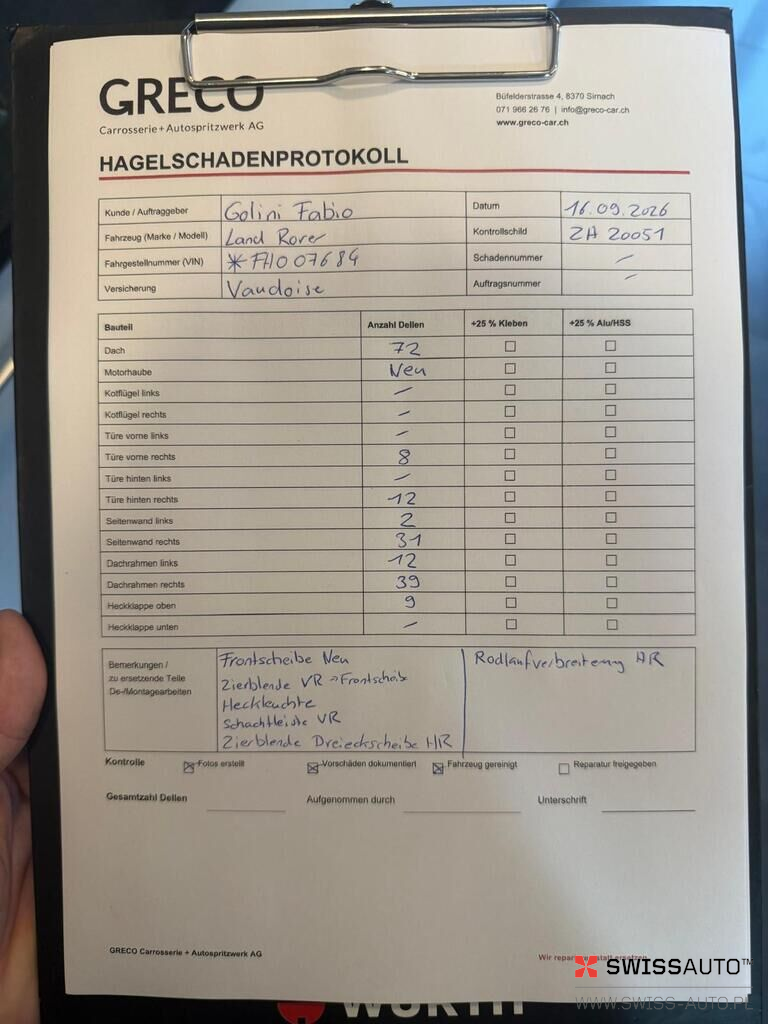 GRECO
Carrosserie + Autospritzwerk AG
Büfelderstrasse 4, 8370 Sirnach
071 966 26 76 | info@greco-car.ch
www.greco-car.ch
HAGELSCHADENPROTOKOLL
Kunde / Auftraggeber Golini Fabio Datum 16.09.2026
Fahrzeug (Marke / Modell) Land Rover Kontrollschild ZH 20051
Fahrgestellnummer (VIN) *FH007684 Schadennummer –
Versicherung Vaudoise Auftragsnummer –
Bauteil Anzahl Dellen +25 % Kleben +25 % Alu/HSS
Dach 72 ☐ ☐
Motorhaube Neu ☐ ☐
Kotflügel links – ☐ ☐
Kotflügel rechts – ☐ ☐
Türe vorne links – ☐ ☐
Türe vorne rechts 8 ☐ ☐
Türe hinten links – ☐ ☐
Türe hinten rechts 12 ☐ ☐
Seitenwand links 2 ☐ ☐
Seitenwand rechts 31 ☐ ☐
Dachrahmen links 12 ☐ ☐
Dachrahmen rechts 39 ☐ ☐
Heckklappe oben 9 ☐ ☐
Heckklappe unten – ☐ ☐
Bemerkungen /
zu ersetzende Teile
De-/Montagearbeiten
Frontscheibe Neu
Zierblende VR → Frontscheibe
Heckleuchte
Schachtleiste VR
Zierblende Dreieckscheibe HR
Radlaufverbreiterung HR
Kontrolle ☒ Fotos erstellt ☒ Vorschäden dokumentiert ☒ Fahrzeug gereinigt ☐ Reparatur freigegeben
Gesamtzahl Dellen Aufgenommen durch Unterschrift
GRECO Carrosserie + Autospritzwerk AG
Wir reparieren statt ersetzen
SWISSAUTO™
WWW.SWISS-AUTO.PL
WÜRTH